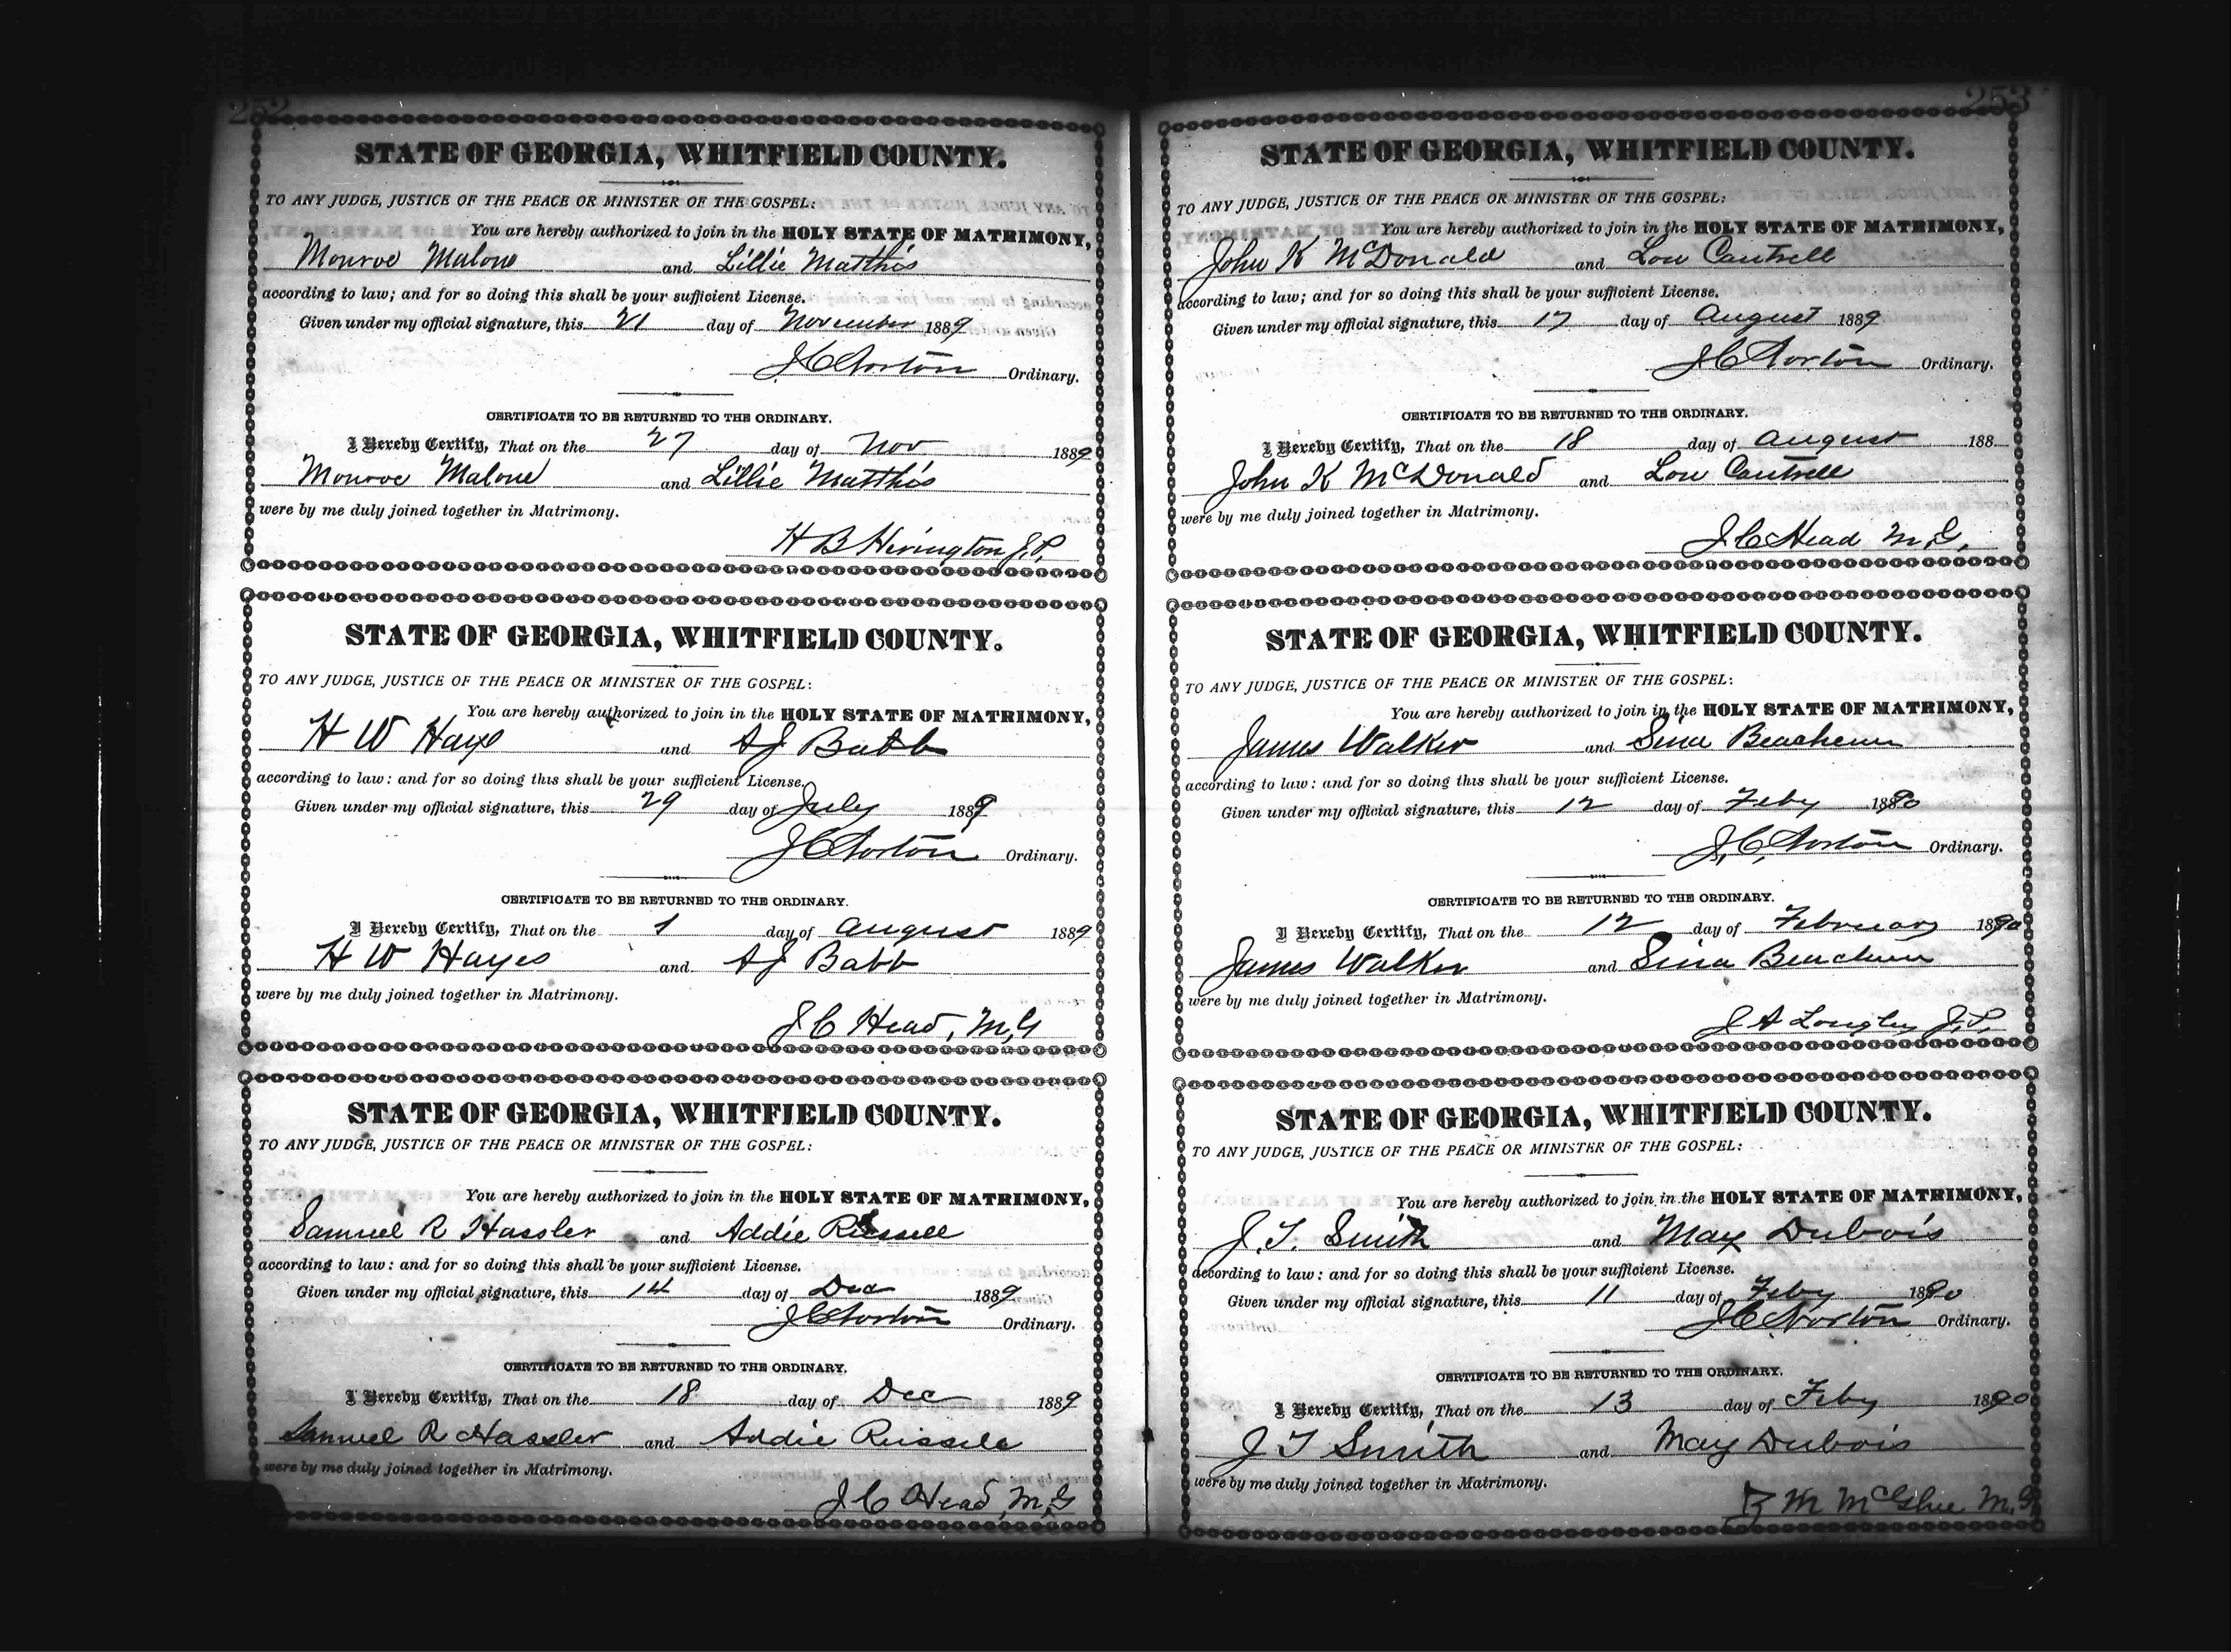 252
STATE OF GEORGIA, WHITFIELD COUNTY.
TO ANY JUDGE, JUSTICE OF THE PEACE OR MINISTER OF THE GOSPEL:
You are hereby authorized to join in the HOLY STATE OF MATRIMONY,
Monroe Malone and Lillie Matthis
according to law; and for so doing this shall be your sufficient License.
Given under my official signature, this 21 day of November 1889
J C Norton Ordinary.
CERTIFICATE TO BE RETURNED TO THE ORDINARY.
I Hereby Certify, That on the 27 day of Nov 1889
Monroe Malone and Lillie Matthis
were by me duly joined together in Matrimony.
H B Herington J.P.
STATE OF GEORGIA, WHITFIELD COUNTY.
TO ANY JUDGE, JUSTICE OF THE PEACE OR MINISTER OF THE GOSPEL:
You are hereby authorized to join in the HOLY STATE OF MATRIMONY,
H W Hays and A J Babb
according to law: and for so doing this shall be your sufficient License.
Given under my official signature, this 29 day of July 1889
J C Norton Ordinary.
CERTIFICATE TO BE RETURNED TO THE ORDINARY.
I Hereby Certify, That on the 1 day of August 1889
H W Hayes and A J Babb
were by me duly joined together in Matrimony.
J C Head, M,G
STATE OF GEORGIA, WHITFIELD COUNTY.
TO ANY JUDGE, JUSTICE OF THE PEACE OR MINISTER OF THE GOSPEL:
You are hereby authorized to join in the HOLY STATE OF MATRIMONY,
Samuel R Hassler and Addie Russell
according to law: and for so doing this shall be your sufficient License.
Given under my official signature, this 14 day of Dec 1889
J C Norton Ordinary.
CERTIFICATE TO BE RETURNED TO THE ORDINARY.
I Hereby Certify, That on the 18 day of Dec 1889
Samuel R Hassler and Addie Russell
were by me duly joined together in Matrimony.
J C Head, M,G
253
STATE OF GEORGIA, WHITFIELD COUNTY.
TO ANY JUDGE, JUSTICE OF THE PEACE OR MINISTER OF THE GOSPEL:
You are hereby authorized to join in the HOLY STATE OF MATRIMONY,
John K McDonald and Lou Cantrell
according to law; and for so doing this shall be your sufficient License.
Given under my official signature, this 17 day of August 1889
J C Norton Ordinary.
CERTIFICATE TO BE RETURNED TO THE ORDINARY.
I Hereby Certify, That on the 18 day of August 188
John K McDonald and Lou Cantrell
were by me duly joined together in Matrimony.
J C Head M,G,
STATE OF GEORGIA, WHITFIELD COUNTY.
TO ANY JUDGE, JUSTICE OF THE PEACE OR MINISTER OF THE GOSPEL:
You are hereby authorized to join in the HOLY STATE OF MATRIMONY,
James Walker and Sina Beachem
according to law: and for so doing this shall be your sufficient License.
Given under my official signature, this 12 day of Feby 1890
J, C, Norton Ordinary.
CERTIFICATE TO BE RETURNED TO THE ORDINARY.
I Hereby Certify, That on the 12 day of February 1890
James Walker and Sina
were by me duly joined together in Matrimony.
J A Longley J.P.
STATE OF GEORGIA, WHITFIELD COUNTY.
TO ANY JUDGE, JUSTICE OF THE PEACE OR MINISTER OF THE GOSPEL:
You are hereby authorized to join in the HOLY STATE OF MATRIMONY,
J. T. Smith and May Dubois
according to law: and for so doing this shall be your sufficient License.
Given under my official signature, this 11 day of Feby 1890
J C Norton Ordinary.
CERTIFICATE TO BE RETURNED TO THE ORDINARY.
I Hereby Certify, That on the 13 day of Feby 1890
J T Smith and May Dubois
were by me duly joined together in Matrimony.
M McGhee M,G